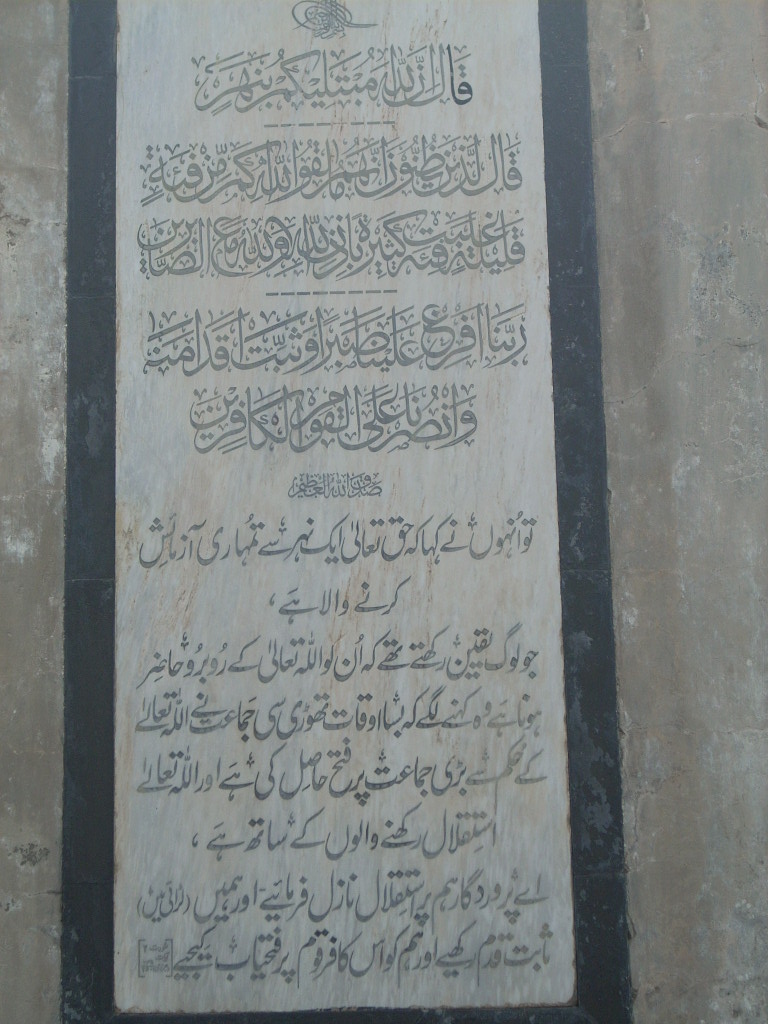 قَالَ اِنَّ اللّٰهَ مُبْتَلِيْكُمْ بِنَهَرٍ
قَالَ الَّذِيْنَ يَظُنُّوْنَ اَنَّهُمْ مُّلٰقُوا اللّٰهِ كَمْ مِّنْ فِئَةٍ
قَلِيْلَةٍ غَلَبَتْ فِئَةً كَثِيْرَةً بِاِذْنِ اللّٰهِ وَاللّٰهُ مَعَ الصَّابِرِيْنَ
رَبَّنَا اَفْرِغْ عَلَيْنَا صَبْرًا وَّثَبِّتْ اَقْدَامَنَا
وَانْصُرْنَا عَلَى الْقَوْمِ الْكَافِرِيْنَ
صدق اللہ العظیم
تو اُنہوں نے کہا کہ حق تعالیٰ ایک نہر سے تمُہاری آزمائش
کرنے والا ہَے ،
جو لوگ یقین رکھتے تھے کہ اُن کو اللہ تعالیٰ کے رُوبرُو حاضِر
ہونا ہَے وہ کہنے لگے کہ بَسا اوقات تھوڑی سی جَماعت نے اللہ تعالےٰ
کے حُکم سے بڑی جماعت پر فتح حاصِل کی ہَے اور اللہ تعالےٰ
استِقلال رکھنے والوں کے ساتھ ہَے ،
اَے پرَوردگار ہم پر استِقلال نازل فرمائیے اور ہمیں (لڑائی میں)
ثابت قدم رکھیے اور ہم کو اس کافر قوم پر فتحیاب کیجیے